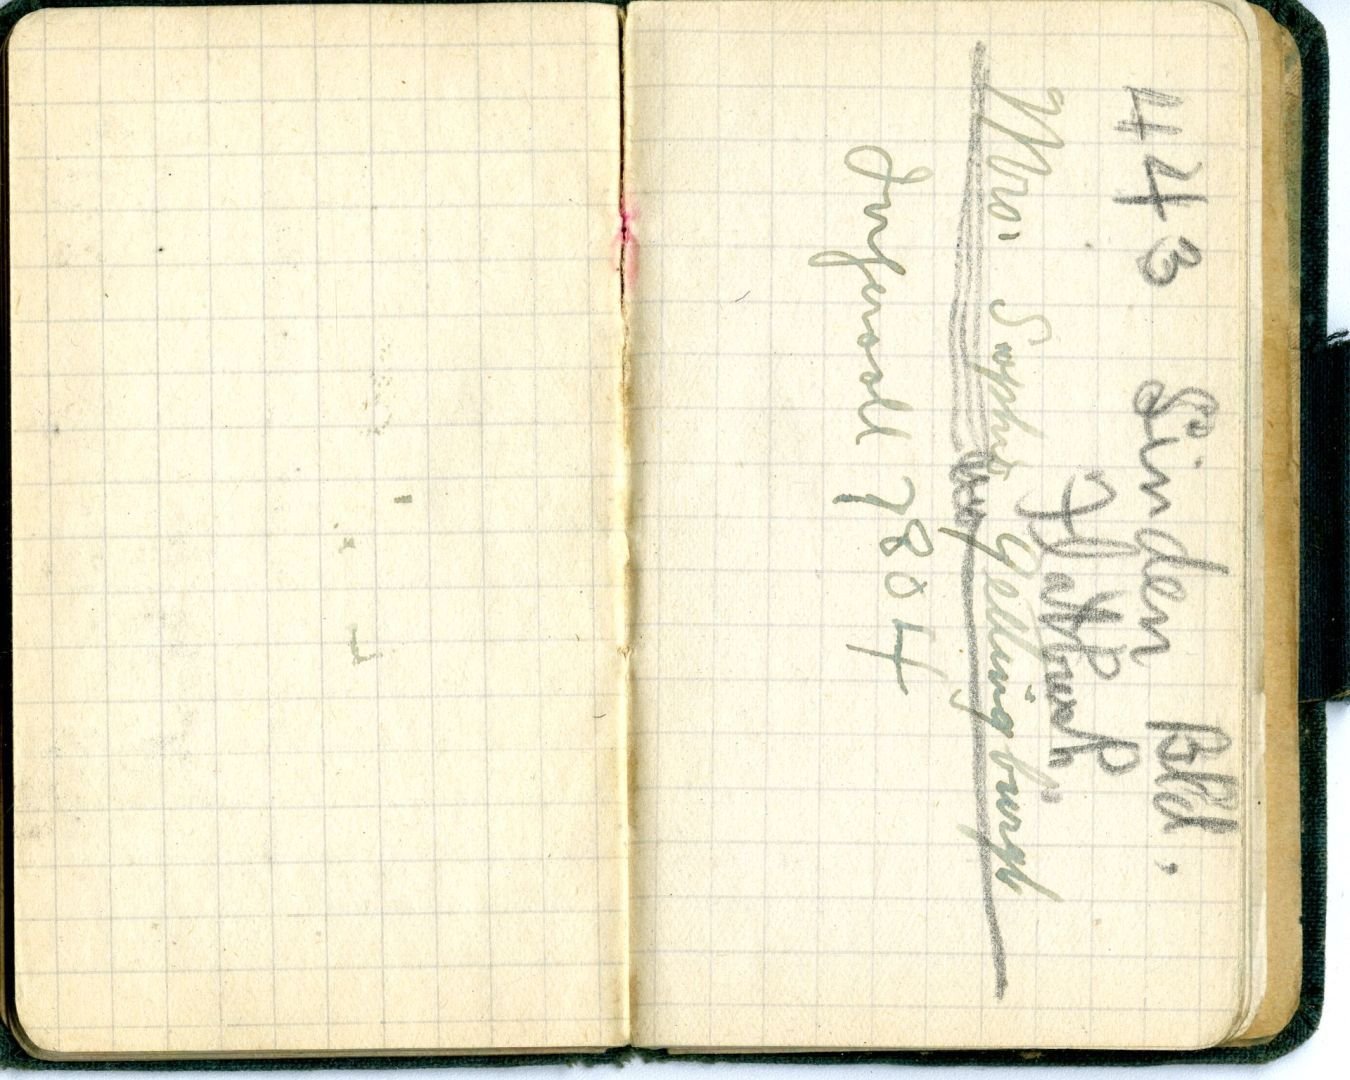 443 Linden Bld.
Flatbush
Mrs. Sophie Gellingburgh
Ingersoll 7804